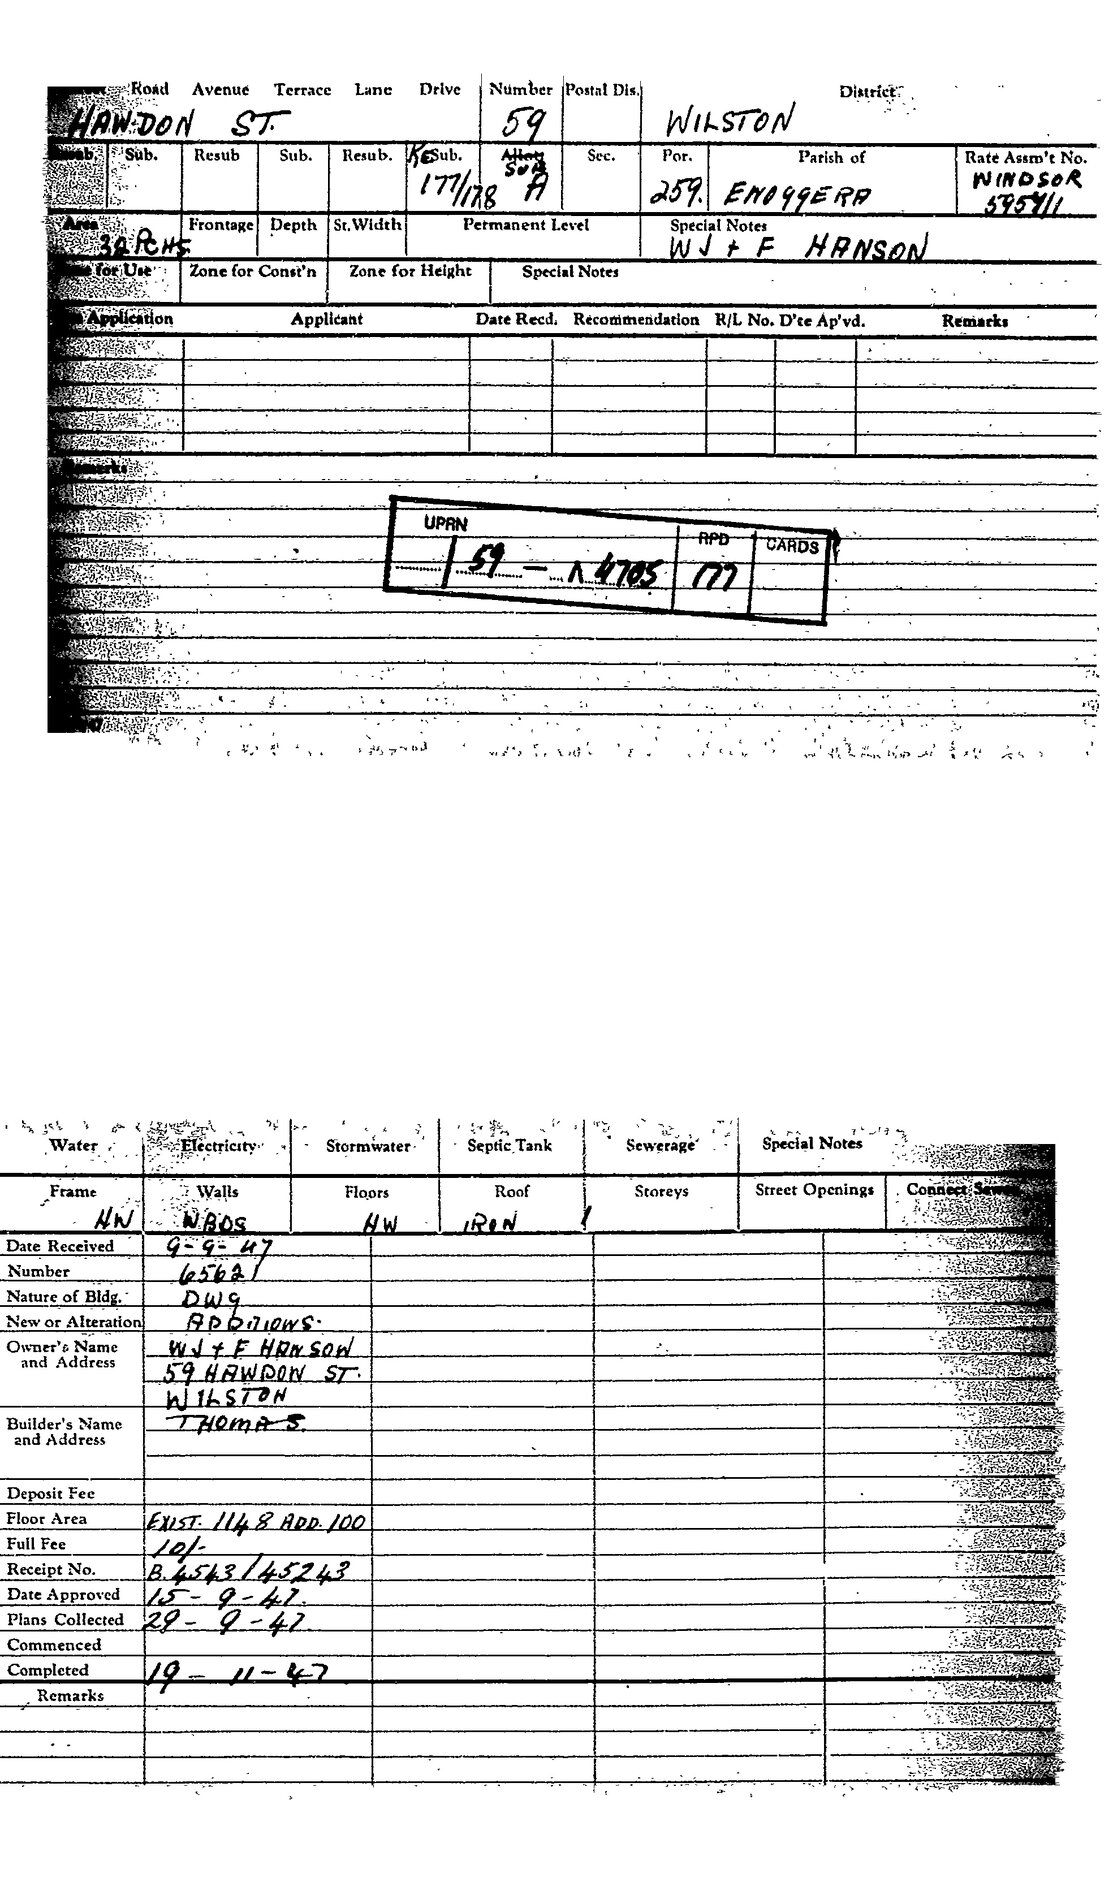 Road Avenue Terrace Lane Drive Number Postal Dis. District
HAWDON ST. 59 WILSTON
Resub. Sub. Resub Sub. Resub. ReSub. Allot Sub Sec. Por. Parish of Rate Assm't No.
177/178 A 259. ENOGGERA WINDSOR
5954/1
Area Frontage Depth St. Width Permanent Level Special Notes
32 PCHS. WJ + F HANSON
for Use Zone for Const'n Zone for Height Special Notes
Application Applicant Date Recd. Recommendation R/L No. D'te Ap'vd. Remarks
Remarks
UPRN RPD CARDS
59 - 4705 177
Water Electricity Stormwater Septic Tank Sewerage Special Notes
Frame Walls Floors Roof Storeys Street Openings Connect Sewer
HW WBDS HW IRON 1
Date Received 9-9-47
Number 65621
Nature of Bldg. DWG
New or Alteration ADDITIONS.
Owner's Name WJ + F HANSON
and Address 59 HAWDON ST.
WILSTON
Builder's Name THOMAS.
and Address
Deposit Fee
Floor Area EXIST. 1148 ADD. 100
Full Fee 10/-
Receipt No. B. 4543/45243
Date Approved 15-9-47.
Plans Collected 29-9-47.
Commenced
Completed 19-11-47
Remarks